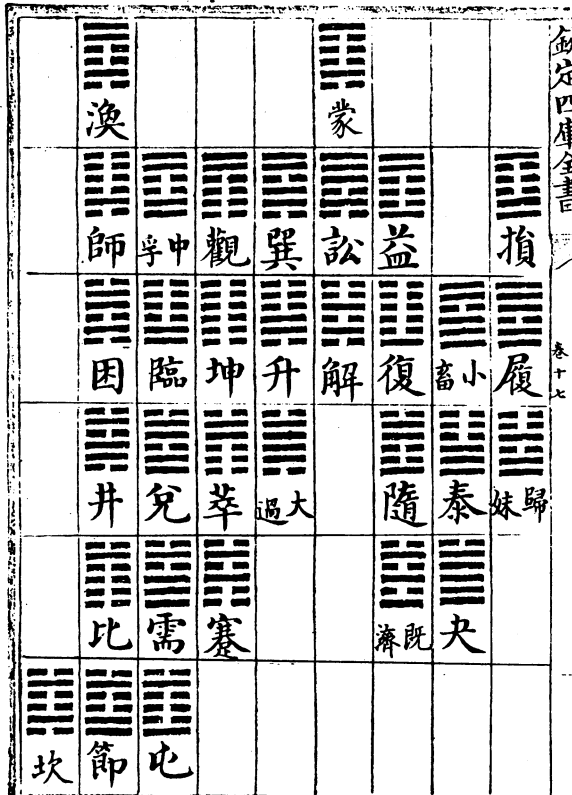 欽定四庫全書
卷十七
損
履
歸妹
小畜
泰
夬
益
復
隨
既濟
蒙
訟
解
巽
升
大過
觀
坤
萃
蹇
中孚
臨
兌
需
屯
渙
師
困
井
比
節
坎